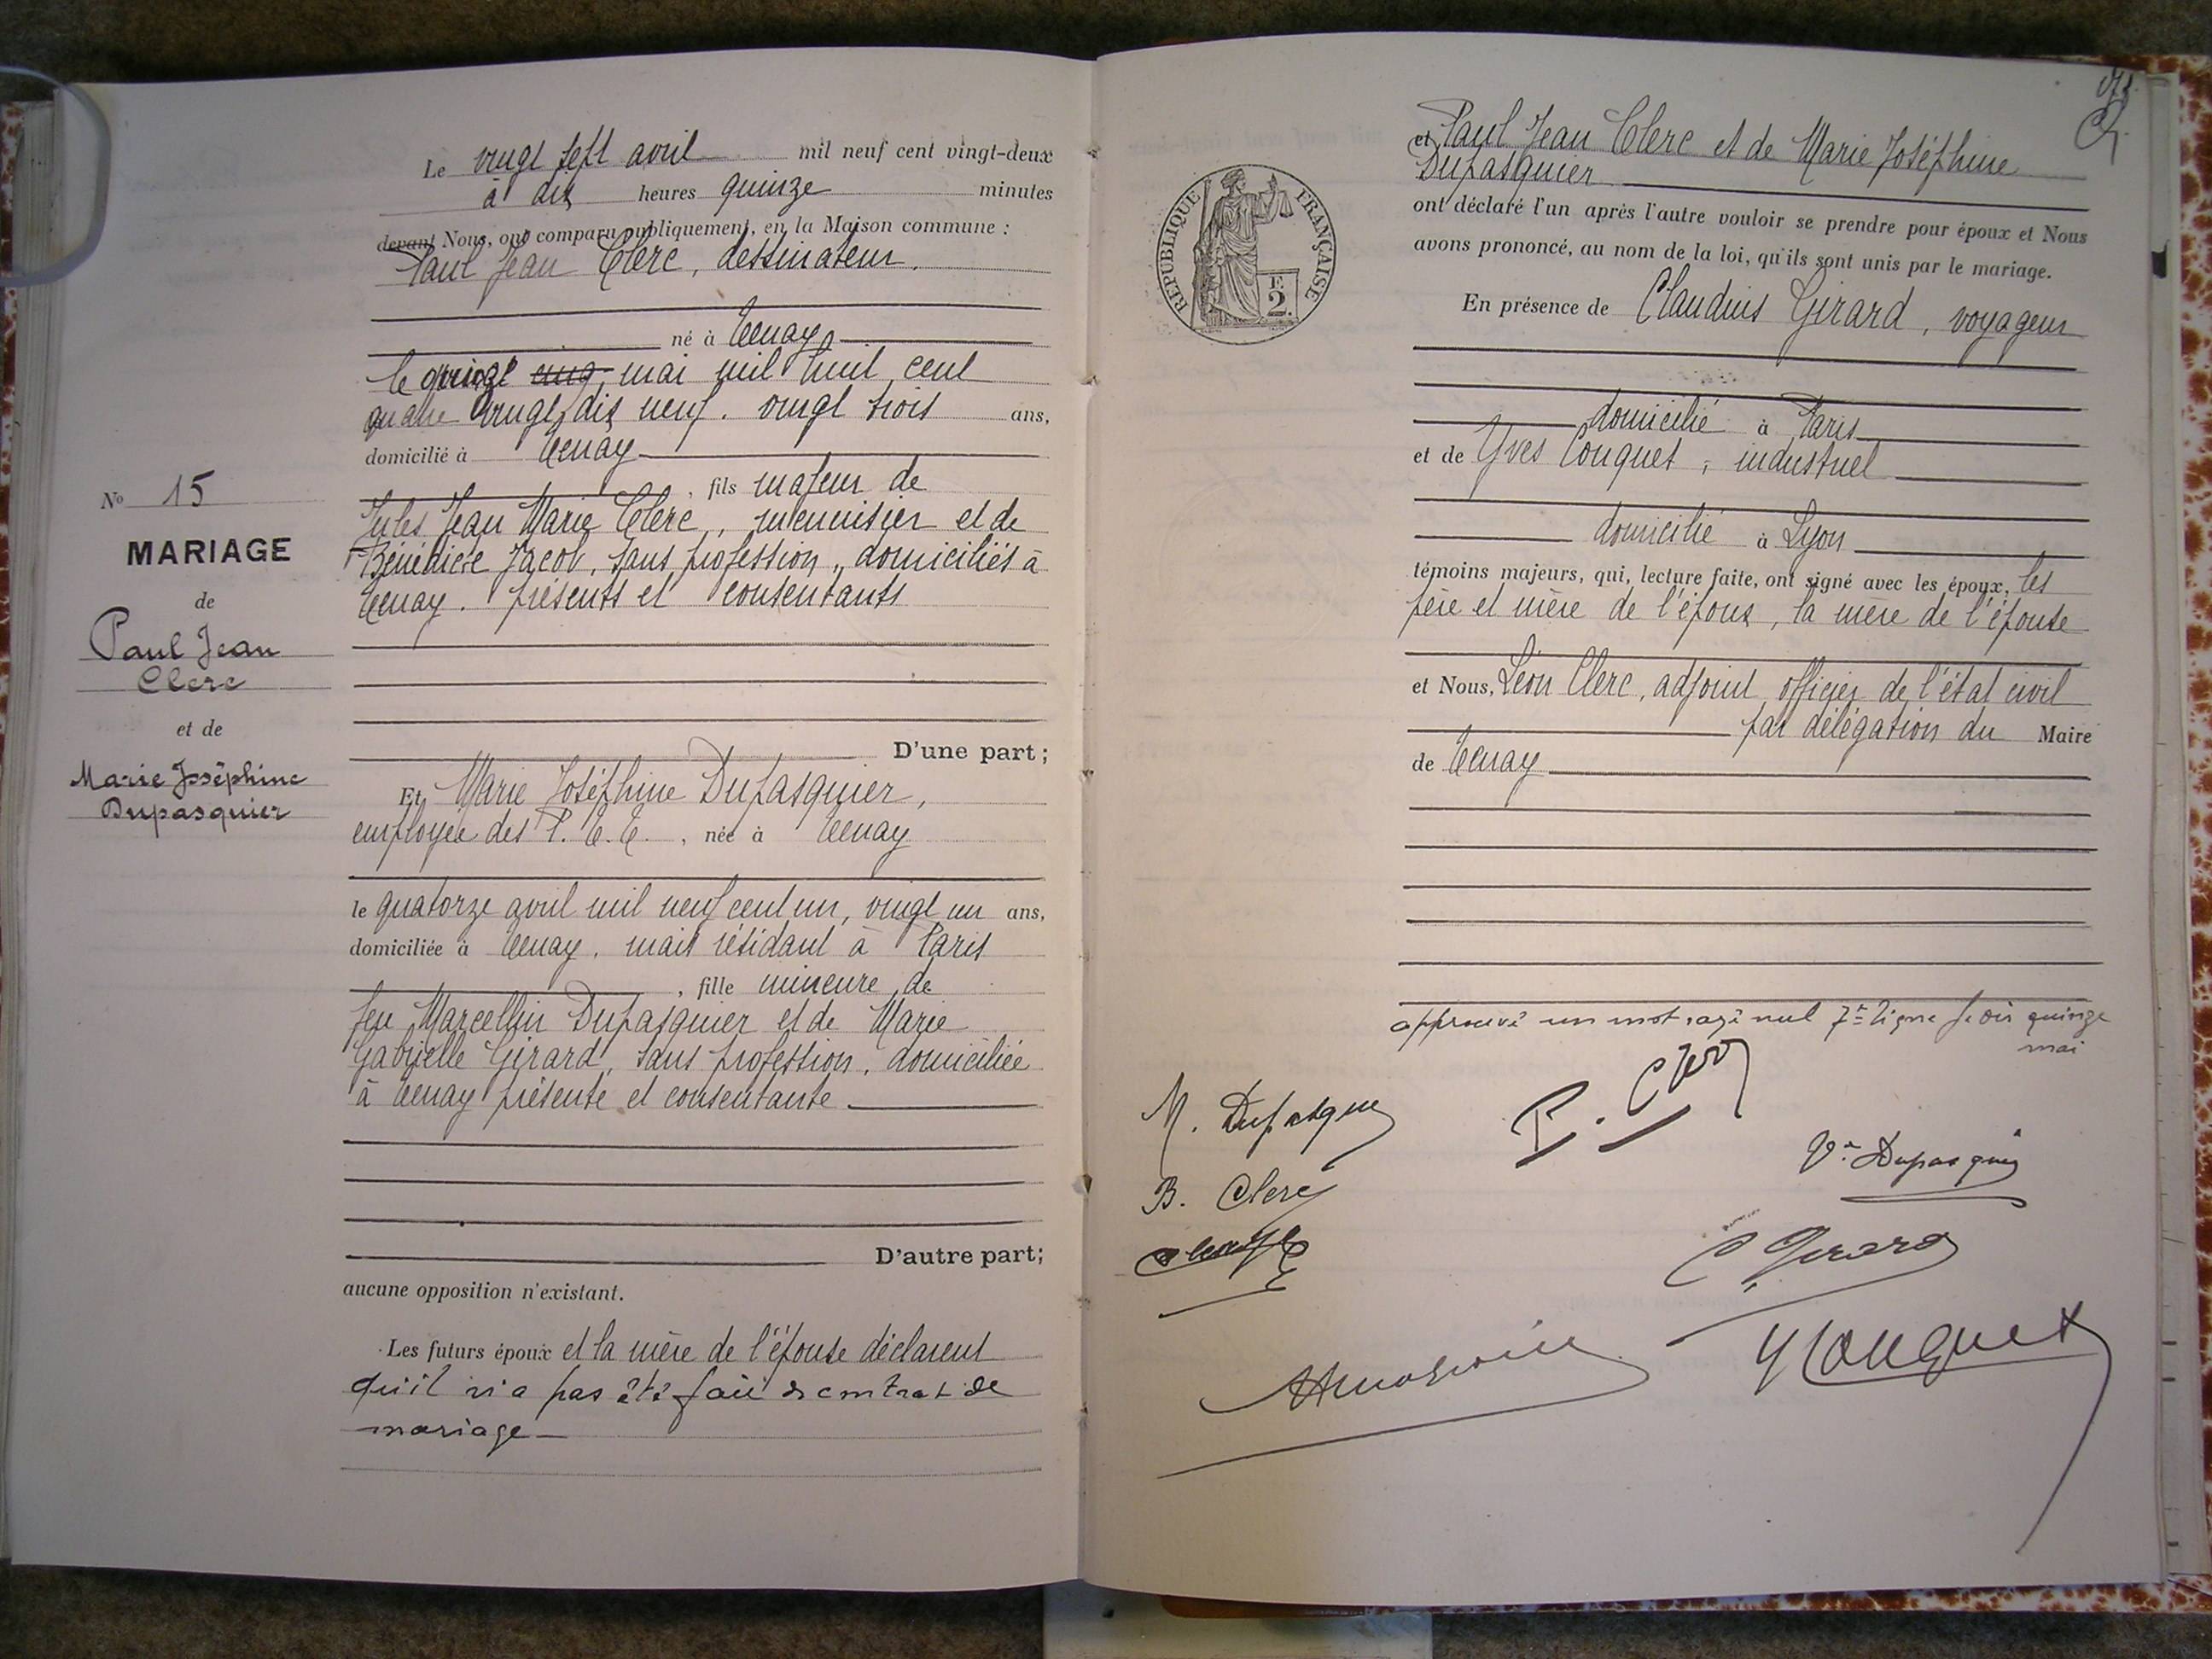 Le vingt sept avril mil neuf cent vingt-deux
à dix heures quinze minutes
devant Nous, ont comparu publiquement, en la Maison commune :
Paul Jean Clerc, dessinateur.
né à Tenay
le quinze cinq mai mil huit cent
quatre vingt dix neuf. vingt trois ans,
domicilié à Tenay
, fils majeur de
Jules Jean Marie Clerc, menuisier et de
Bénédicte Jacob, sans profession, domiciliés à
Tenay. présents et consentants
D'une part ;
No 15
MARIAGE
de
Paul Jean
Clerc
et de
Marie Joséphine
Dupasquier
Et Marie Joséphine Dupasquier,
employée des P.T.T. , née à Tenay
le quatorze avril mil neuf cent un, vingt un ans,
domiciliée à Tenay. mais résidant à Paris
, fille mineure de
feu Marcellin Dupasquier et de Marie
Gabrielle Girard, sans profession, domiciliée
à Tenay présente et consentante
D'autre part;
aucune opposition n'existant.
Les futurs époux et la mère de l'épouse déclarent
qu'il n'a pas été fait de contrat de
mariage
et Paul Jean Clerc et de Marie Joséphine
Dupasquier
ont déclaré l'un après l'autre vouloir se prendre pour époux et Nous
avons prononcé, au nom de la loi, qu'ils sont unis par le mariage.
RÉPUBLIQUE FRANÇAISE
F.
2.
En présence de Claudius Girard, voyageur
domicilié à Paris
et de Yves Couquet, industriel
domicilié à Lyon
témoins majeurs, qui, lecture faite, ont signé avec les époux, les
père et mère de l'époux, la mère de l'épouse
et Nous, Léon Clerc, adjoint officier de l'état civil
par délégation du Maire
de Tenay
approuvé un mot rayé nul 7e ligne quinze
mai
M. Dupasquier
P. Clerc
Ve Dupasquier
B. Clerc
C. Girard
Y Couquet